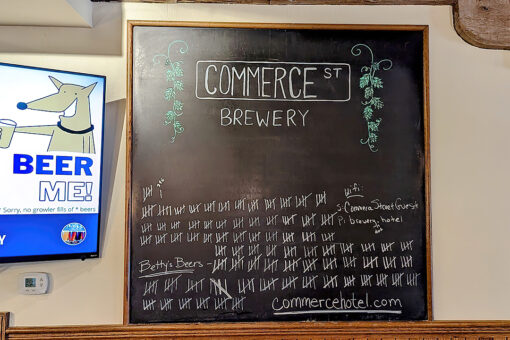 COMMERCE ST
BREWERY
BEER
ME!
* Sorry, no growler fills of * beers
wifi:
S: Commerce Street Guests
P: brewery.hotel
Betty's Beers -
commercehotel.com